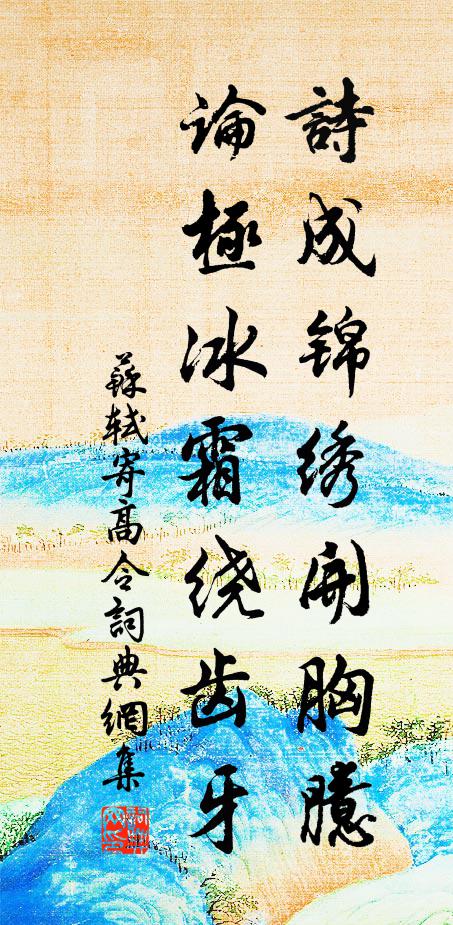 詩成锦绣開胸臆
论極冰霜绕齿牙
蘇轼寄高令詞典網集